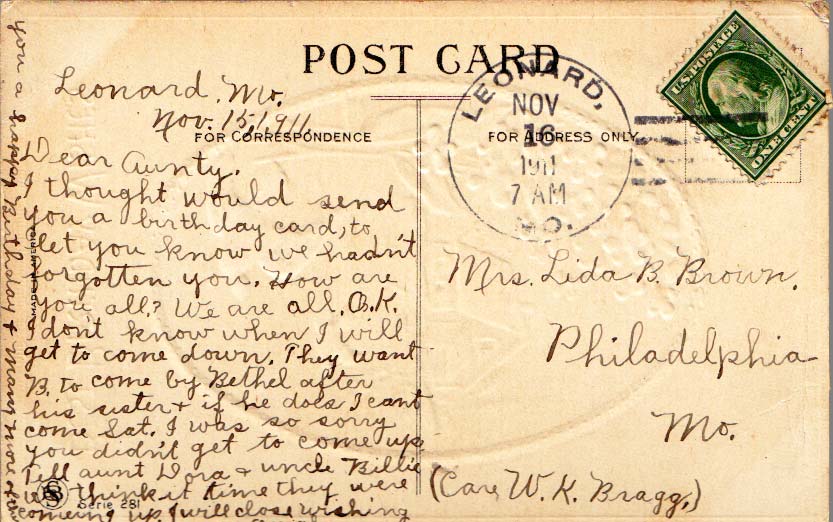 POST CARD
FOR CORRESPONDENCE
FOR ADDRESS ONLY
Leonard, Mo.
Nov. 15, 1911
Dear Aunty.
I thought would send
you a birthday card, to
let you know we hadn't
forgotten you. How are
you all? We are all. O.K.
I don't know when I will
get to come down. They want
B. to come by Bethel after
his sister + if he does I cant
come Sat. I was so sorry
you didn't get to come up.
Tell aunt Dora + uncle Billie
we think it time they were
comeing up. I will close wishing
you a happy Birthday + many more of them
MADE IN AMERICA
SB
Serie 281
LEONARD,
NOV
16
1911
7 AM
MO.
U.S. POSTAGE
ONE CENT
Mrs. Lida B. Brown.
Philadelphia
Mo.
(Care W. K. Bragg.)